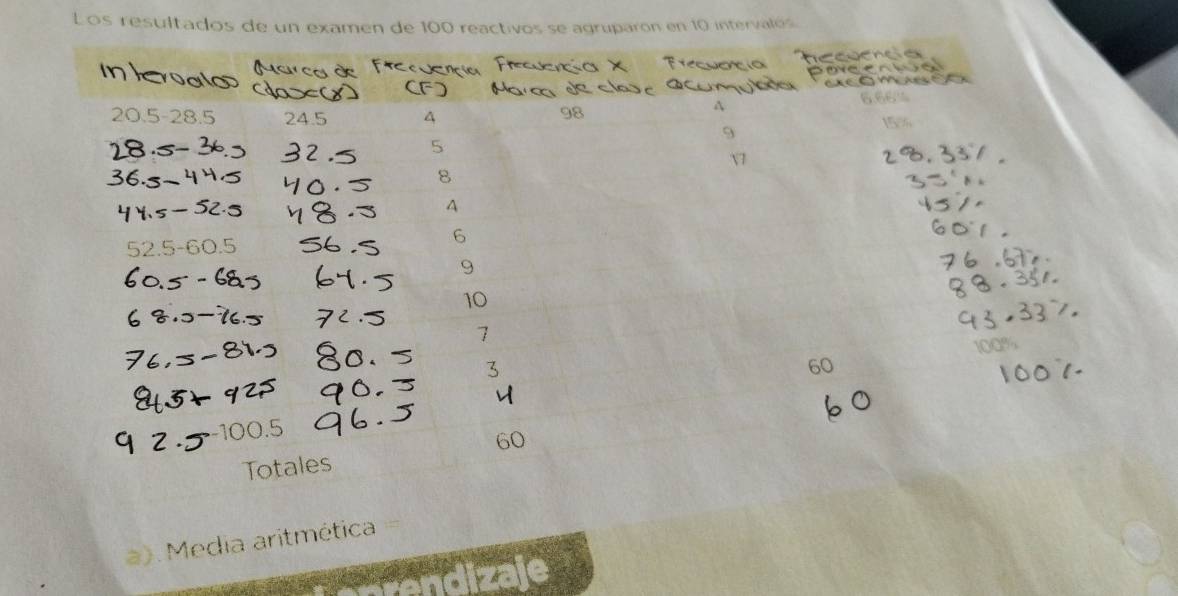 Los resultados de un examen de 100 reactivos se agruparon en 10 intervalos.
Intervalos Marca de clase (x) Frecuencia (F) Frecuencia x Marca de clase Frecuencia acumulada Frecuencia porcentual acumulada
20.5-28.5 24.5 4 98 4 6.66%
28.5-36.5 32.5 5 9 15%
36.5-44.5 40.5 8 17 28.33%.
44.5-52.5 48.5 4 35%.
52.5-60.5 56.5 6 45%.
60.5-68.5 64.5 9 60%.
68.5-76.5 72.5 10 76.67%.
76.5-84.5 80.5 7 88.35%.
84.5-92.5 90.5 3 60 93.33%.
92.5-100.5 96.5 4 60 100%
100%
Totales 60
a). Media aritmética =
aprendizaje